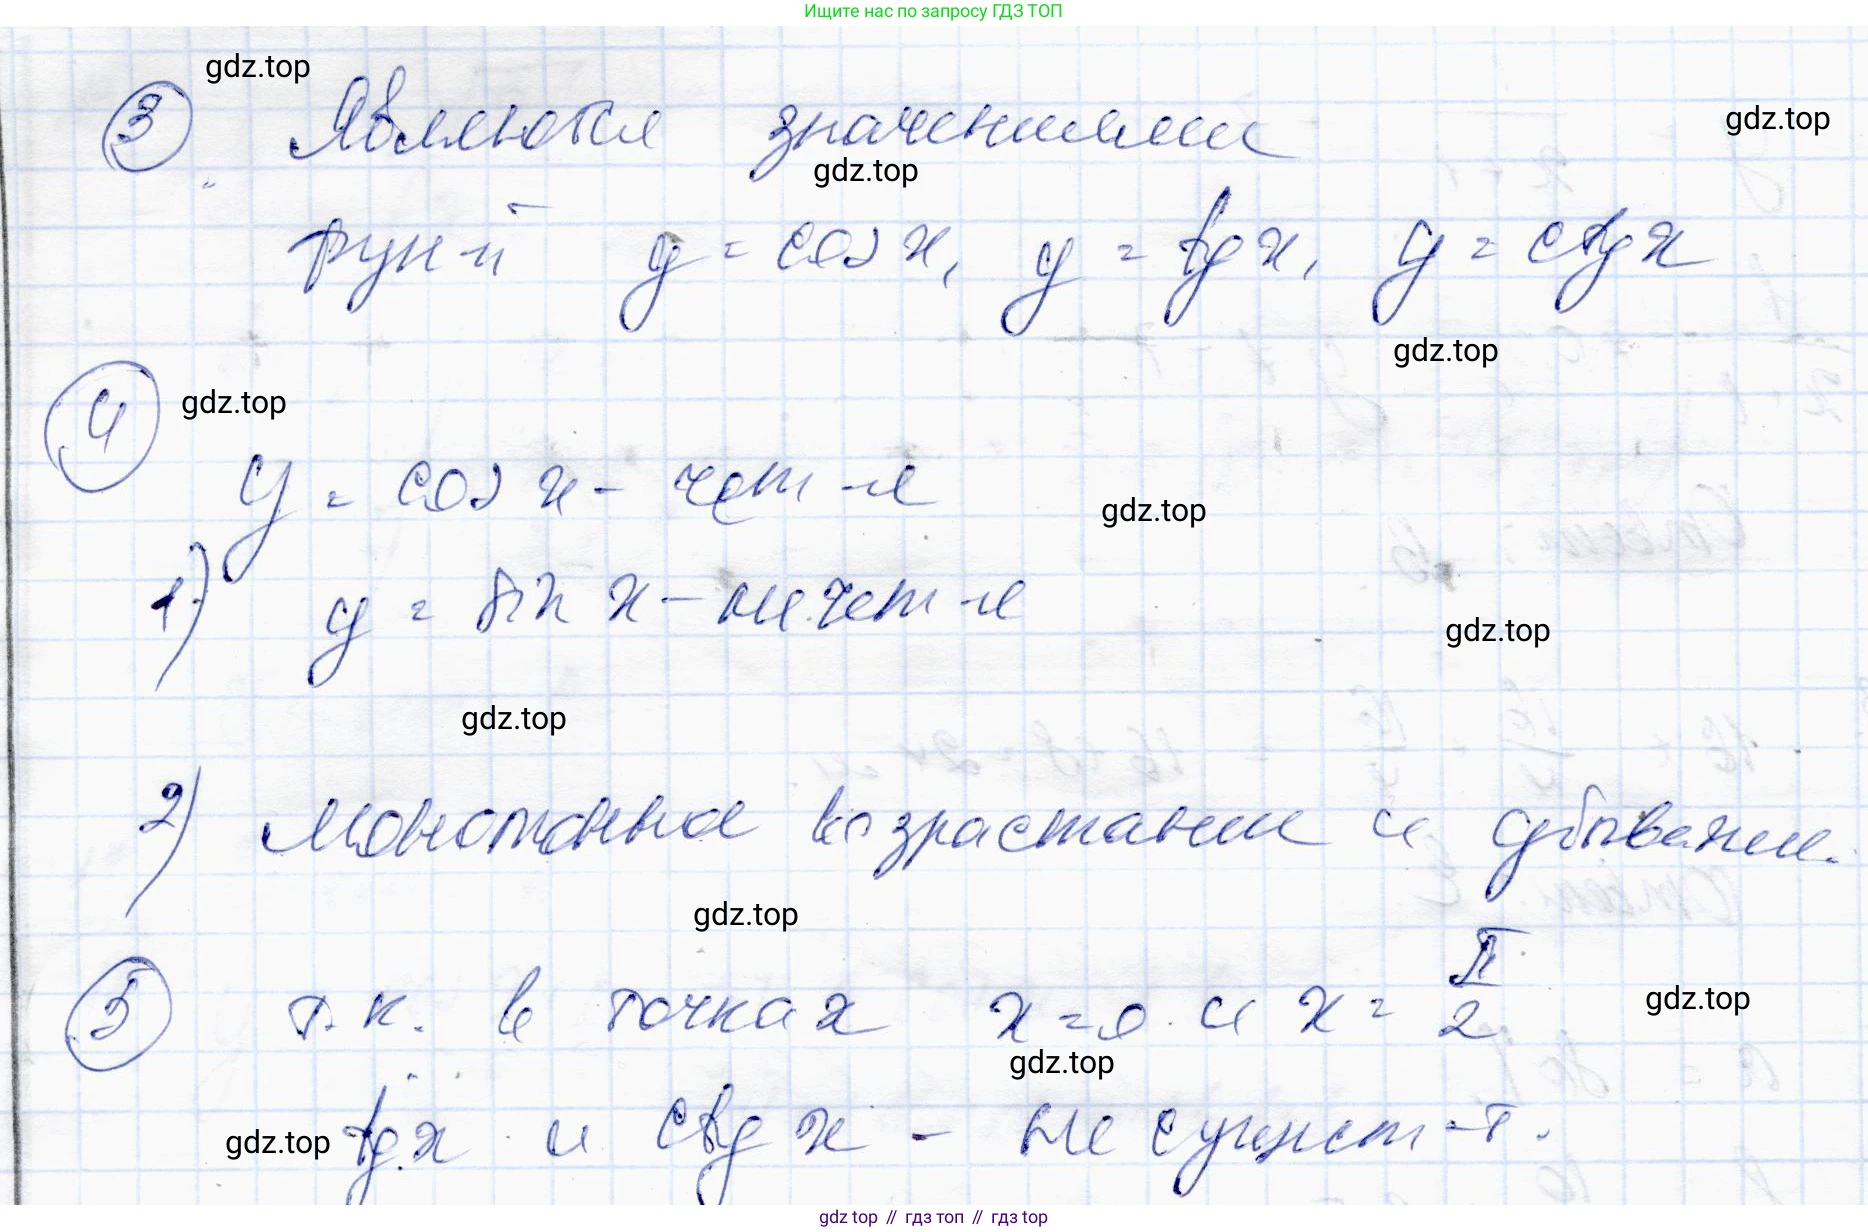 Ищите нас по запросу ГДЗ ТОП
gdz.top
③ Являются значениями
gdz.top
gdz.top
фун-й y = cos x, y = tg x, y = ctg x
gdz.top
④ gdz.top
y = cos x - чет-я
gdz.top
1) y = sin x - нечет-я
gdz.top
gdz.top
2) Монотонное возрастании и убывании.
gdz.top
⑤ т.к. в точках x = 0 и x = π/2
gdz.top
gdz.top
gdz.top tg x и ctg x - не сущест-т.
gdz top // гдз топ // гдз top